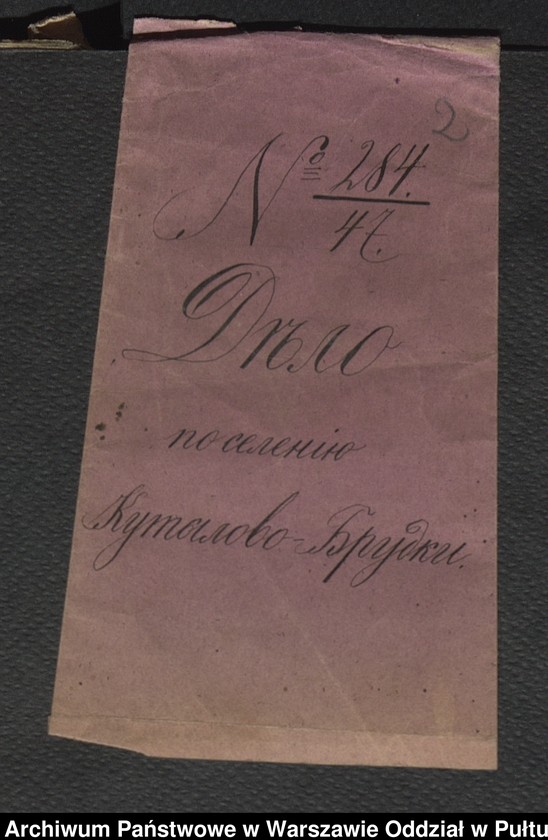 2
№ 284.
47.
Дѣло
по селенію
Кутылово-Брудки.
Archiwum Państwowe w Warszawie Oddział w Pułtu